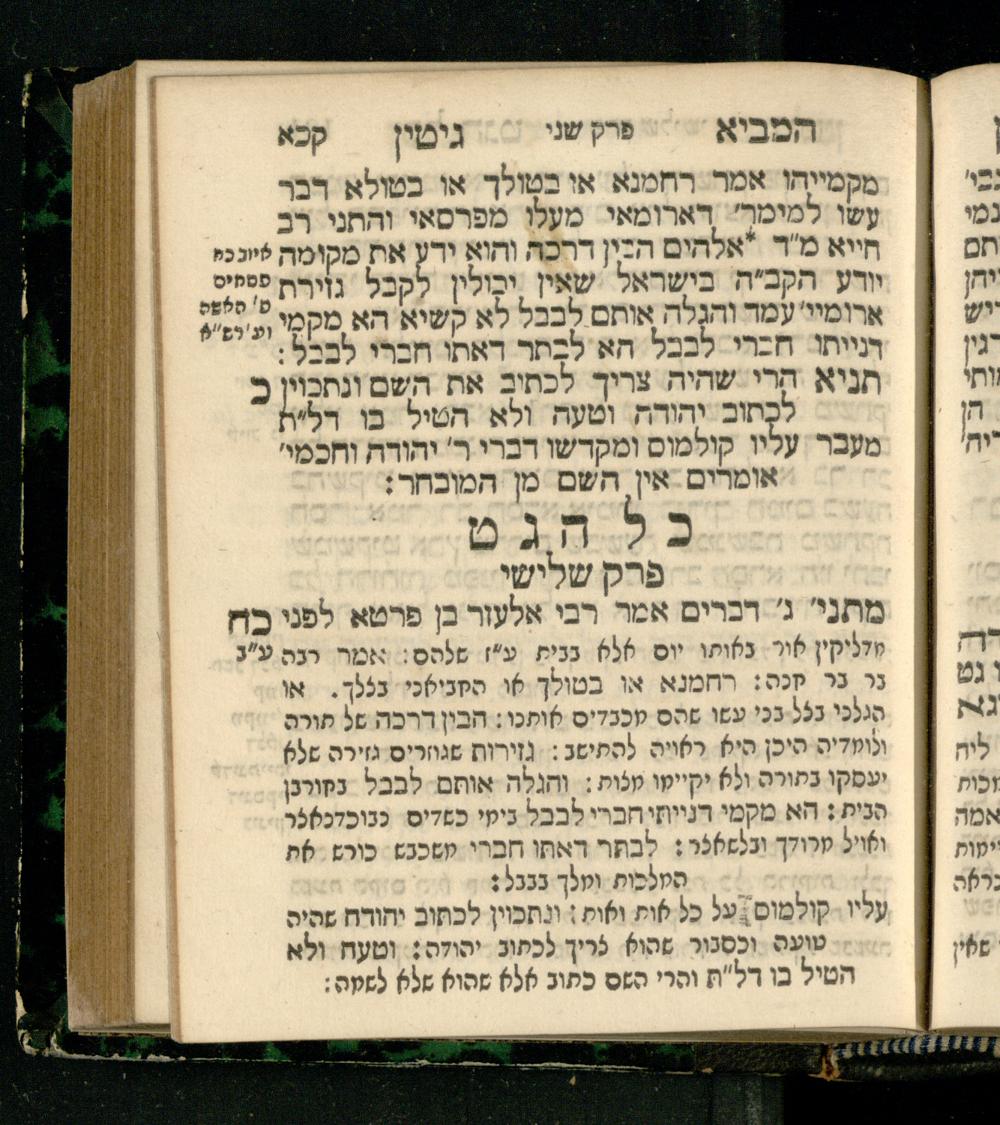 המביא פרק שני גיטין קכא
מקמייהו אמר רחמנא או בטולך או בטולא דבר
עשו למימר׳ דארומאי מעלו מפרסאי והתני רב
חייא מ״ד *אלהים הבין דרכה והוא ידע את מקומה
יודע הקב״ה בישראל שאין יכולין לקבל גזירת
ארומיי׳ עמד והגלה אותם לבבל לא קשיא הא מקמי
דנייתו חברי לבבל הא לבתר דאתו חברי לבבל :
תניא הרי שהיה צריך לכתוב את השם ונתכוין
לכתוב יהודה וטעה ולא הטיל בו דל״ת
מעבר עליו קולמוס ומקדשו דברי ר׳ יהודה וחכמי׳
אומרים אין השם מן המובחר :
איוב כח
פסחים
ס׳ האשה
וע׳ רש״א
כ
כל הגט
פרק שלישי
מתני׳ ג׳ דברים אמר רבי אלעזר בן פרטא לפני
כח
ע״ב
מדליקין אור באותו יום אלא בבית ע״ז שלהם : אמר רבה
בר בר חנה : רחמנא או בטולך או הקביאני בצלך . או
הגלני בצל בני עשו שהם מכבדים אותנו : הבין דרכה של תורה
ולומדיה היכן היא ראויה להתישב : גזירות שגוזרים גזירה שלא
יעסקו בתורה ולא יקיימו מצות : והגלה אותם לבבל בחורבן
הבית : הא מקמי דנייתי חברי לבבל בימי כשדים נבוכדנאצר
ואויל מרודך ובלשאצר : לבתר דאתו חברי משכבש כורש את
המלכות ומלך בבבל :
עליו קולמוס על כל אות ואות : ונתכוין לכתוב יהודה שהיה
טועה וכסבור שהוא צריך לכתוב יהודה : וטעה ולא
הטיל בו דל״ת והרי השם כתוב אלא שהוא שלא לשמה :